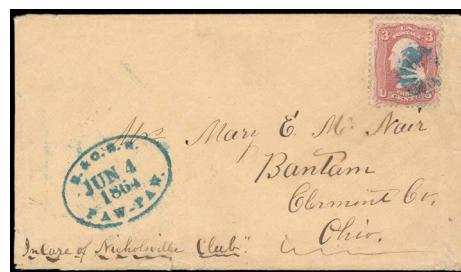 3 U.S. POSTAGE 3
B. & O. R. R.
JUN 4
1864
PAW-PAW.
Mary E. Mc Nair
Bantam
Clermont Co,
Ohio.
In Care of Nicholsville Club"